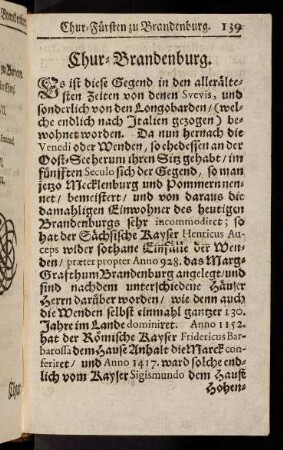 Chur-Fürsten zu Brandenburg. 139
Chur-Brandenburg.
Es ist diese Gegend in den allerälte-
sten Zeiten von denen Svevis, und
sonderlich von den Longobarden/ (wel-
che endlich nach Italien gezogen) be-
wohnet worden. Da nun hernach die
Venedi oder Wenden, so ehedessen an der
Oost-See herum ihren Sitz gehabt/ im
fünfften Seculo sich der Gegend, so man
jetzo Mecklenburg und Pommern nen-
net/ bemeistert/ und von daraus die
damahligen Einwohner des heutigen
Brandenburgs sehr incommodiret; so
hat der Sächsische Kayser Henticus Au-
ceps wider sothane Einfälle der Wen-
den/ præter propter Anno 928. das Marg-
Grafthum Brandenburg angelegt/ und
sind nachdem unterschiedene Häuser
Herrn darüber worden/ wie denn auch
die Wenden selbst einmahl gantzer 130.
Jahre im Lande dominiret. Anno 1152.
hat der Römische Kayser Fridericus Bar-
barossa dem Hause Anhalt die Marck con-
feriret/ und Anno 1417. ward solche end-
lich vom Kayser Sigismundo dem Hauß
Hohen-